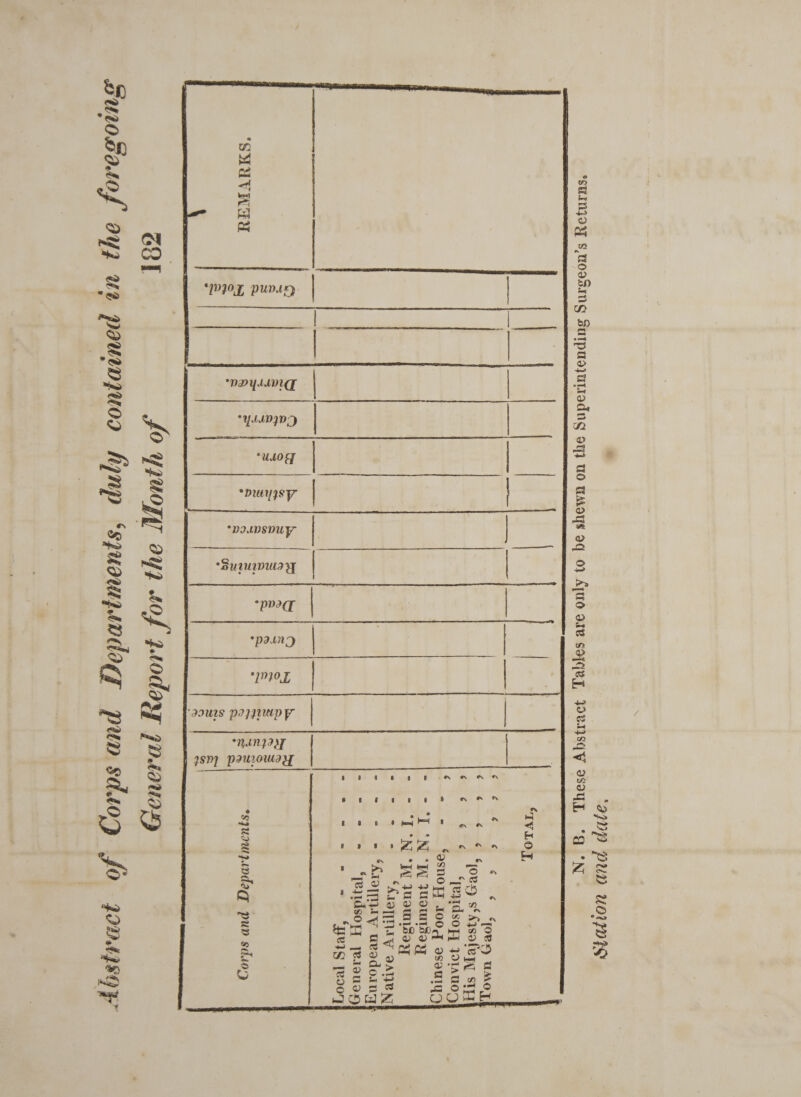 Abstract of Corps and Departments, duly contained in the foregoing
General Report for the Month of 182
Corps and Departments.
Remained last Return.
Admitted since
Total.
Cured.
Dead.
Remaining.
Anasarca.
Asthma.
Born.
Catarrh.
Diarrhœa.
Grand Total.
REMARKS.
Local Staff, - - - - - -
General Hospital, - - - - -
European Artillery, - - - -
Native Artillery, - - - - -
Regiment M. N. I. - -
Regiment M. N. I. - -
Chinese Poor House, - - - -
Convict Hospital, , , , ,
His Majesty,s Gaol, , , , ,
Town Gaol, , , , , ,
TOTAL,
N. B. These Abstract Tables are only to be shewn on the Superintending Surgeon's Returns.
Station and date.